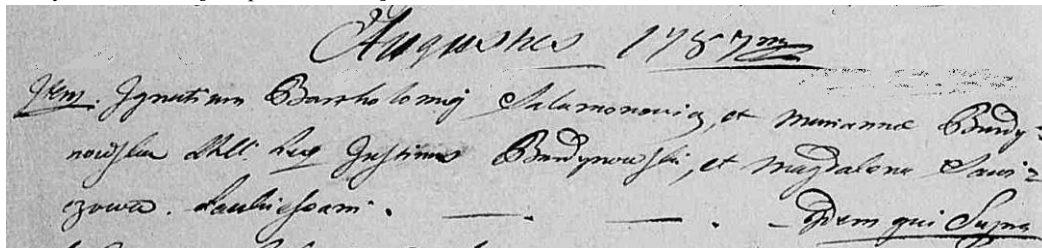 Augustus 1787mus
Item. Ignatium Bartholomej Salamonowicz, et Mariannæ Bandy=
nowska LLC. Lev Justinus Bandynowski, et Magdalena Sawi=
czowa. — . — . — Idem qui Supra